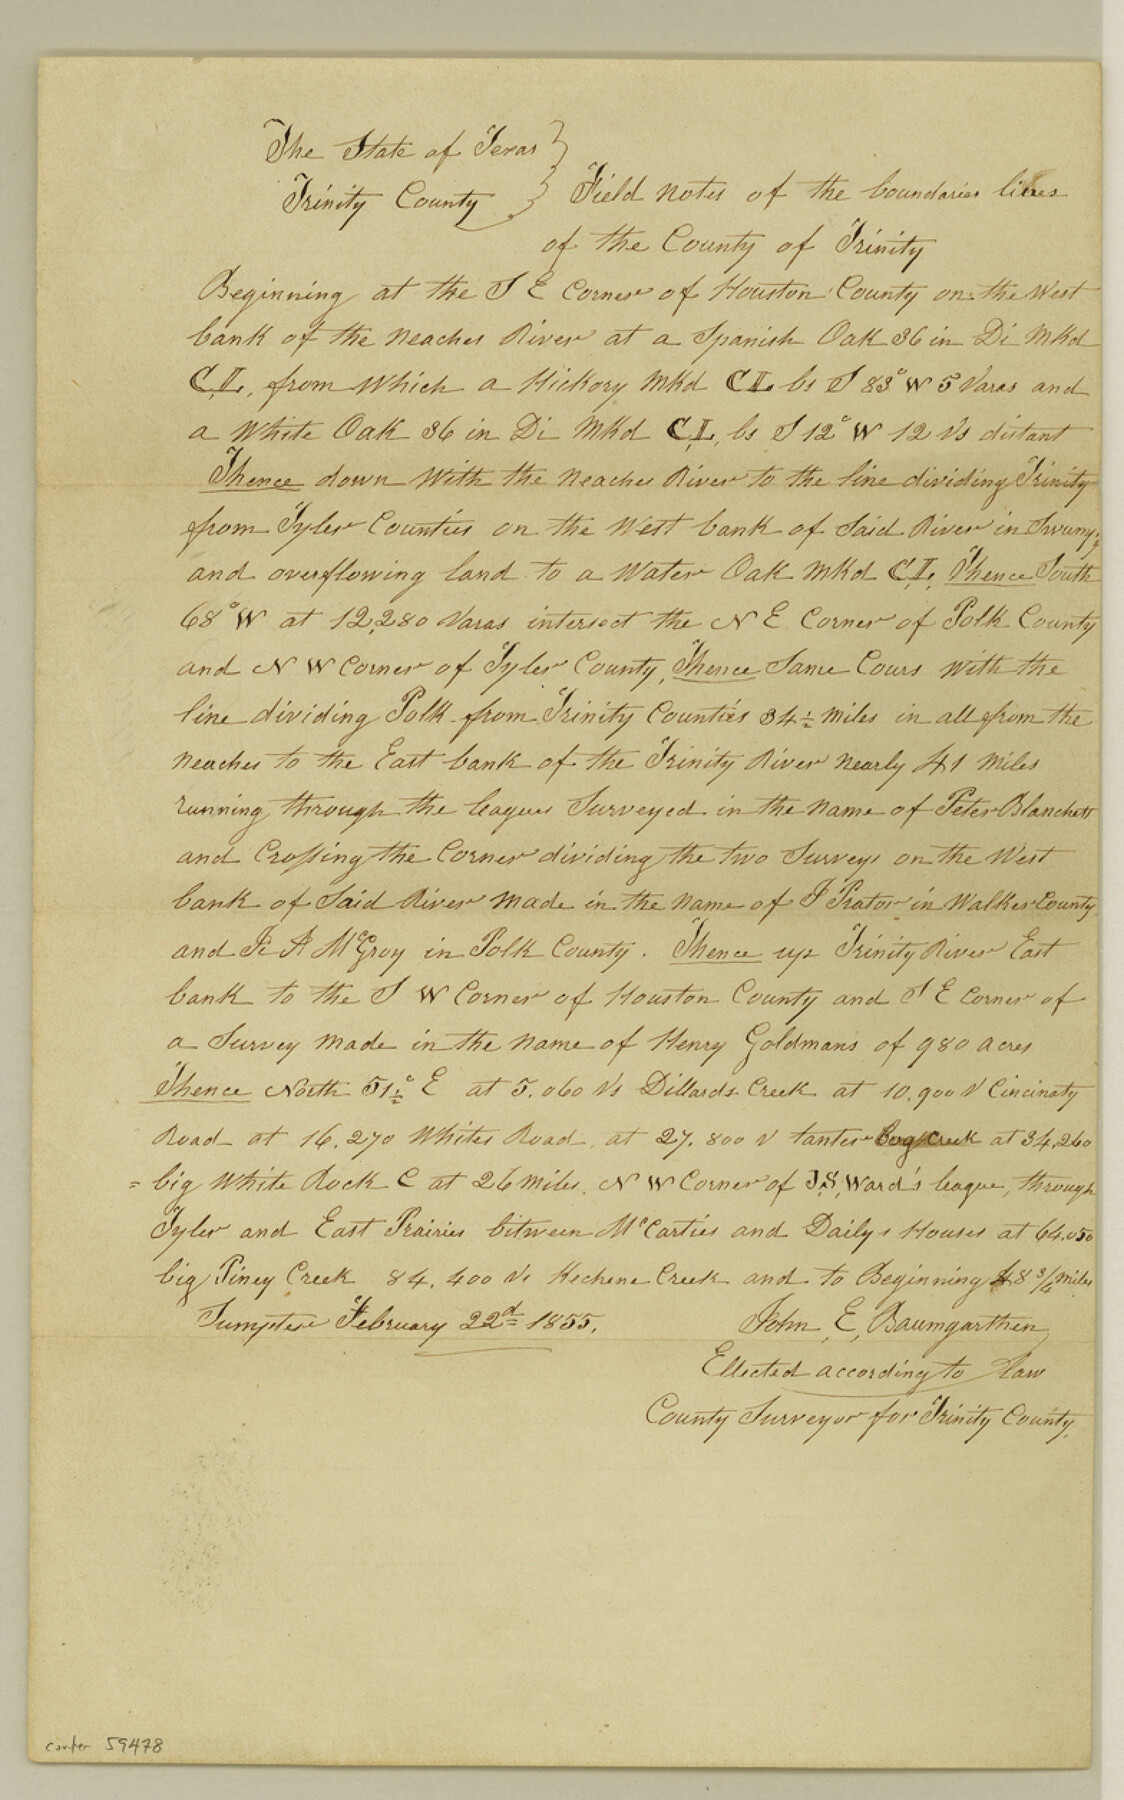 The State of Texas }
Trinity County } Field notes of the boundaries lines
of the County of Trinity
Beginning at the S E Corner of Houston County on the West
bank of the Neaches River at a Spanish Oak 36 in Di Mkd
C.L. from Which a Hickory Mkd C L bs S 83° W 5 Varas and
a White Oak 36 in Di Mkd C.L, bs S 12° W 12 Vs distant
Thence down With the Neaches River to the line dividing Trinity
from Tyler Counties on the West bank of Said River in
and overflowing land to a Water Oak Mkd C.L. Thence South
68° W at 12,280 Varas intersect the N E Corner of Polk County
and N W Corner of Tyler County, Thence Same Cours with the
line dividing Polk from Trinity Counties 34½ Miles in all from the
Neaches to the East bank of the Trinity River Nearly 41 Miles
running through the leagues Surveyed in the Name of Peter Blanchett
and Crossing the Corner dividing the two Surveys on the West
bank of Said River Made in the Name of Prator in Walker County
and A McGroy in Polk County. Thence up Trinity River East
bank to the S W Corner of Houston County and S E Corner of
a Survey Made in the Name of Henry Goldmans of 980 acres
Thence North 51½° E at 5.060 Vs Dillards Creek at 10.900 V Cincinaty
Road at 16.270 Whites Road at 27.800 v Creek at 34,260
= big White Rock C at 26 Miles. N W Corner of J.S. Ward's league, through
Tyler and East Prairies bitween McCarties and Dailys Houses at 64.050
big Piney Creek 84.400 Vs Hechene Creek and to Beginning 48¾ Miles
Sumpter February 22d 1855.
John, E, Baumgarthen
Ellected according to Law
County Surveyor for Trinity County,
counter 59478